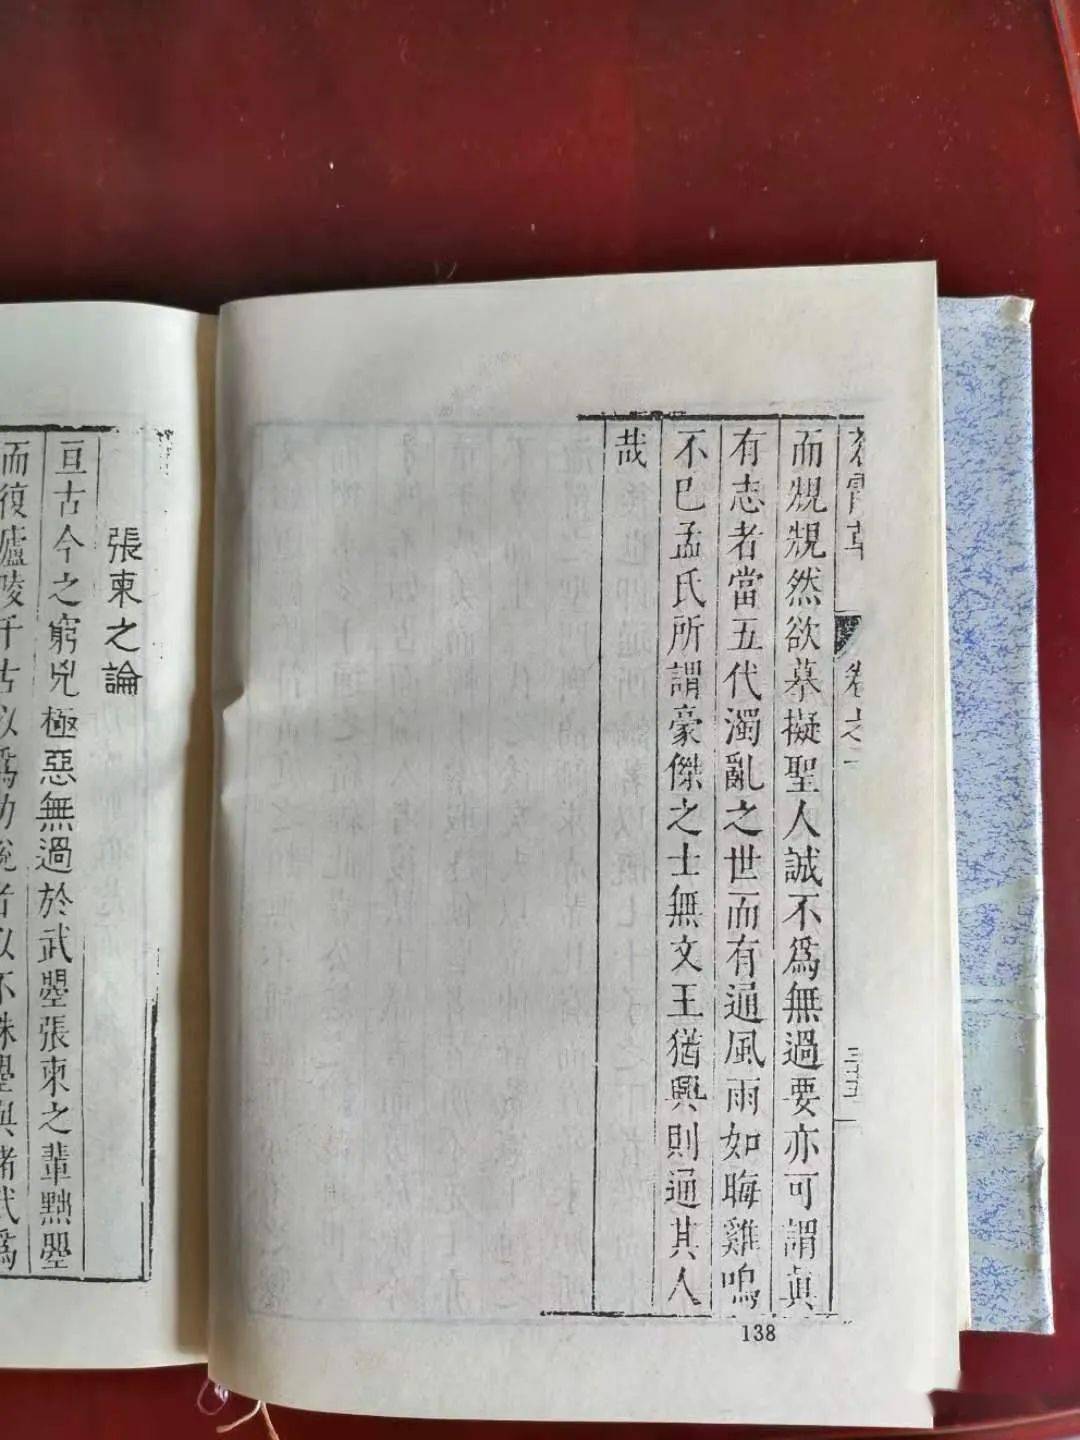 卷之
而規規然欲摹擬聖人誠不爲無過要亦可謂眞
有志者當五代濁亂之世而有通風雨如晦雞鳴
不巳孟氏所謂豪傑之士無文王猶興則通其人
哉
138
張柬之論
亘古今之窮兇極惡無過於武曌張柬之輩黜曌
而復廬陵千古以爲功說者以不誅曌與諸武爲